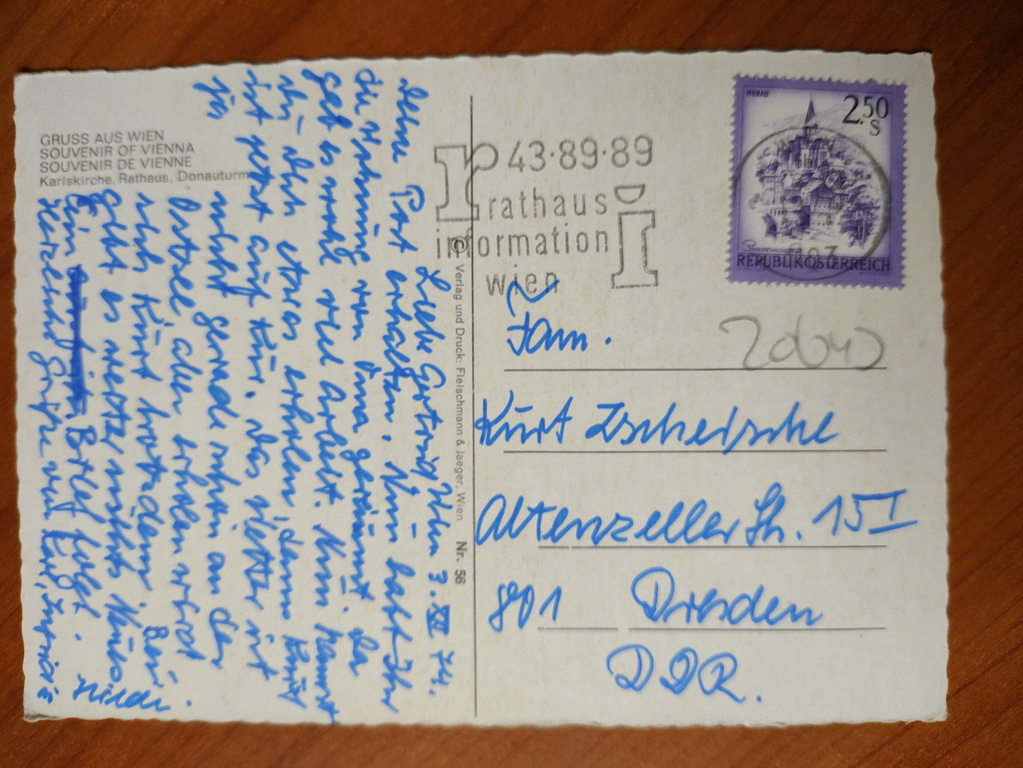 GRUSS AUS WIEN
SOUVENIR OF VIENNA
SOUVENIR DE VIENNE
Karlskirche, Rathaus, Donauturm
Wien 3. 74.
Liebe
Deine Post erhalten. Nun habt Ihr
die Wohnung von Oma geräumt. Da
gab es wohl viel Arbeit. Nun kannst
du dich etwas erholen, denn Kurt
ist jetzt auf Kur. Das Wetter ist
ja nicht gerade schön an der
Ostsee aber erholen wird
sich Kurt trotzdem. Bei
gibt es weiter nichts Neues.
Ein Brief folgt.
Herzliche Grüße von Karl,
© Verlag und Druck: Fleischmann & Jaeger, Wien Nr. 56
43·89·89
rathaus
information
wien
MURAU
2.50
S
REPUBLIK ÖSTERREICH
Fam.
Kurt Zscheische
Altenzeller Str. 15 I
801 Dresden
DDR.